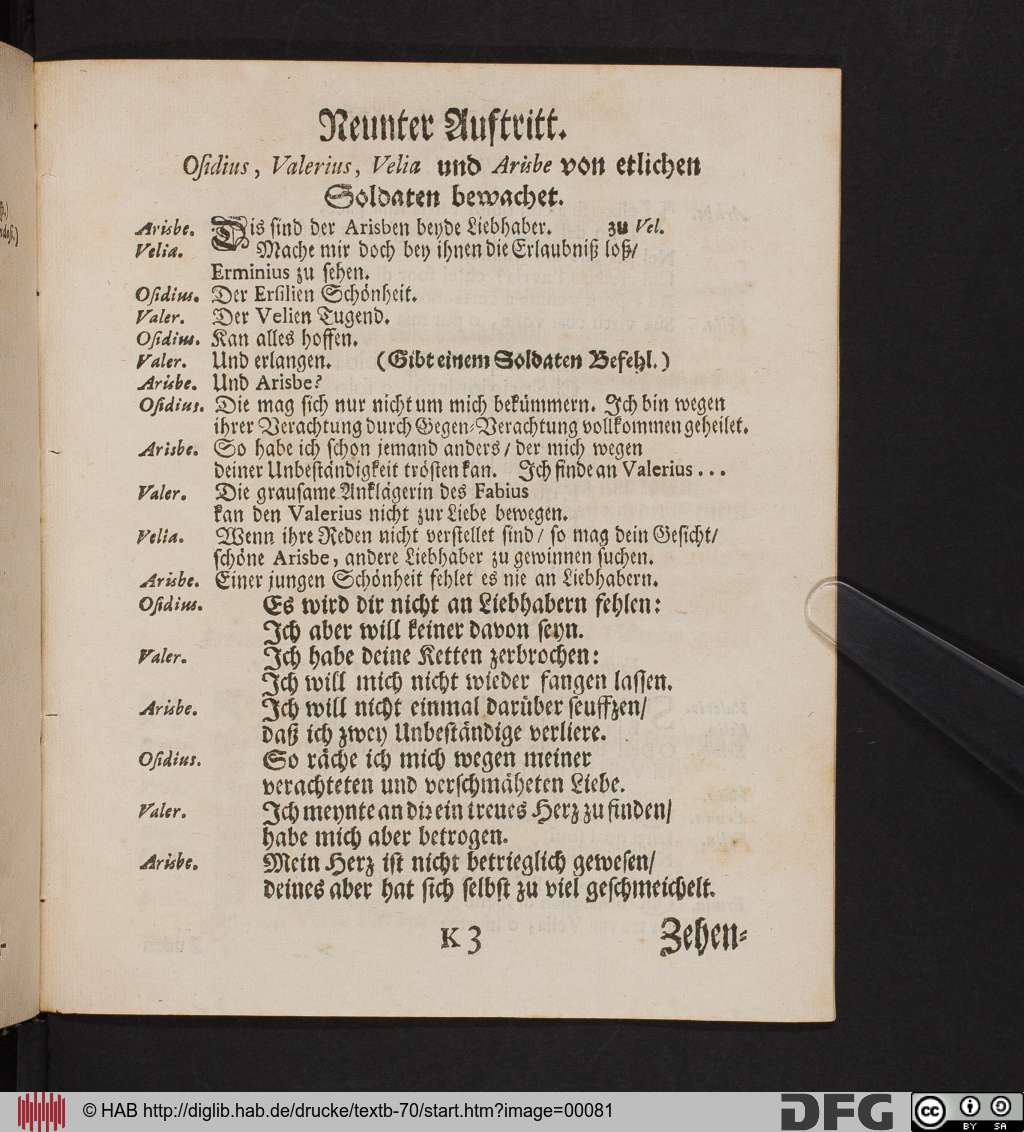 Neunter Auftritt.
Osidius, Valerius, Velia und Arisbe von etlichen
Soldaten bewachet.
Arisbe. Dis sind der Arisben beyde Liebhaber. zu Vel.
Velia. Mache mir doch bey ihnen die Erlaubniß loß/
Erminius zu sehen.
Osidius. Der Ersilien Schönheit.
Valer. Der Velien Tugend.
Osidius. Kan alles hoffen.
Valer. Und erlangen. (Gibt einem Soldaten Befehl.)
Arisbe. Und Arisbe?
Osidius. Die mag sich nur nicht um mich bekümmern. Ich bin wegen
ihrer Verachtung durch Gegen-Verachtung vollkommen geheilet.
Arisbe. So habe ich schon jemand anders/ der mich wegen
deiner Unbeständigkeit trösten kan. Ich finde an Valerius ...
Valer. Die grausame Anklägerin des Fabius
kan den Valerius nicht zur Liebe bewegen.
Velia. Wenn ihre Reden nicht verstellet sind/ so mag dein Gesicht/
schöne Arisbe, andere Liebhaber zu gewinnen suchen.
Arisbe. Einer jungen Schönheit fehlet es nie an Liebhabern.
Osidius. Es wird dir nicht an Liebhabern fehlen:
Ich aber will keiner davon seyn.
Valer. Ich habe deine Ketten zerbrochen:
Ich will mich nicht wieder fangen lassen.
Arisbe. Ich will nicht einmal darüber seuffzen/
daß ich zwey Unbeständige verliere.
Osidius. So räche ich mich wegen meiner
verachteten und verschmäheten Liebe.
Valer. Ich meynte an dir ein treues Herz zu finden/
habe mich aber betrogen.
Arisbe. Mein Herz ist nicht betrieglich gewesen/
deines aber hat sich selbst zu viel geschmeichelt.
K 3 Zehen-
© HAB http://diglib.hab.de/drucke/textb-70/start.htm?image=00081
DFG
cc BY SA